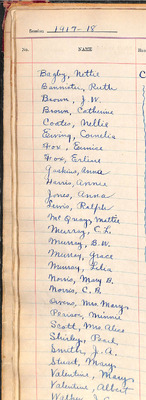 Session 1917-18
No. NAME
Bagby, Nettie
Bannister, Ruth
Brown, J. W.
Brown, Catherine
Coates, Nellie
Ewing, Cornelia
Fox, Eunice
Fox, Erline
Gaskins, Anna
Harris, Annie
Jones, Anna
Lewis, Ralph
McQuay, Mettie
Murray, C. L.
Murray, B. W.
Murray, Grace
Murray, Lelia
Norris, Mary B.
Norris, C. R.
Owens, Mrs. Mary
Pearson, Minnie
Scott, Mrs. Alice
Shirley, Pearl
Smith, J. A.
Stuart, Mary
Valentine, Mary
Valentine, Albert
Walker, J. C.